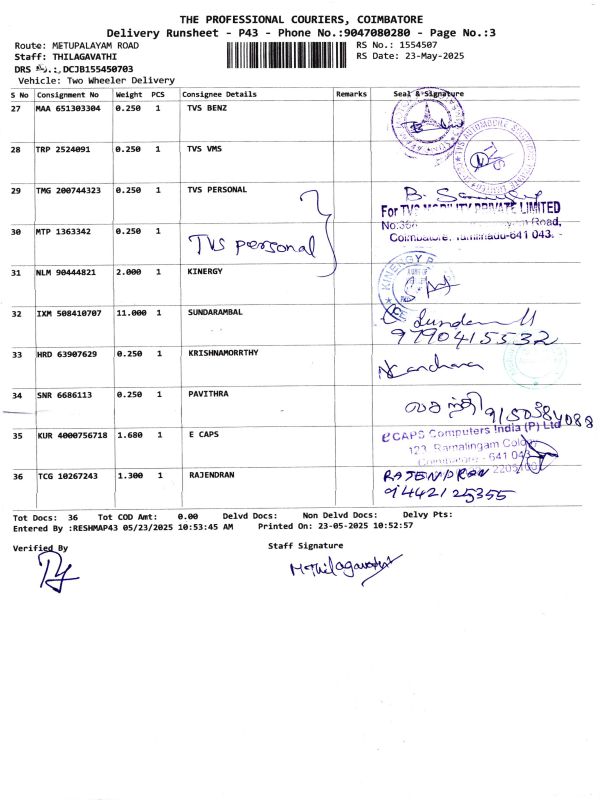 THE PROFESSIONAL COURIERS, COIMBATORE
Delivery Runsheet - P43 - Phone No.:9047080280 - Page No.:3
Route: METUPALAYAM ROAD RS No.: 1554507
Staff: THILAGAVATHI RS Date: 23-May-2025
DRS DCJB155450703
Vehicle: Two Wheeler Delivery
S No Consignment No Weight PCS Consignee Details Remarks Seal & Signature
27 MAA 651303304 0.250 1 TVS BENZ
28 TRP 2524091 0.250 1 TVS VMS
TVS
29 TMG 200744323 0.250 1 TVS PERSONAL
For TVS MOBILITY PRIVATE LIMITED
Road,
30 MTP 1363342 0.250 1
Coimbatore, Tamilnadu-641 043.
TVS personal
31 NLM 90444821 2.000 1 KINERGY
KINERGY
32 IXM 508410707 11.000 1 SUNDARAMBAL
9790415532
33 HRD 63907629 0.250 1 KRISHNAMORRTHY
34 SNR 6686113 0.250 1 PAVITHRA
35 KUR 4000756718 1.680 1 E CAPS
eCAPS Computers India (P) Ltd
123, Ramalingam Colony,
Coimbatore - 641 043
36 TCG 10267243 1.300 1 RAJENDRAN
RAJENDRAN
9442125355
Tot Docs: 36 Tot COD Amt: 0.00 Delvd Docs: Non Delvd Docs: Delvy Pts:
Entered By :RESHMAP43 05/23/2025 10:53:45 AM Printed On: 23-05-2025 10:52:57
Verified By Staff Signature
M.Thilagavathi